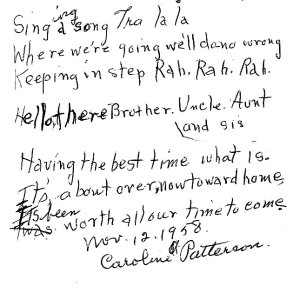 Singing a song Tra la la
Where we're going we'll do no wrong
Keeping in step Rah. Rah. Rah.
Hello, there Brother. Uncle. Aunt
and sis
Having the best time what is.
It's about over, now toward home
It's been worth all our time to come
Nov. 12. 1958.
Caroline A Patterson.